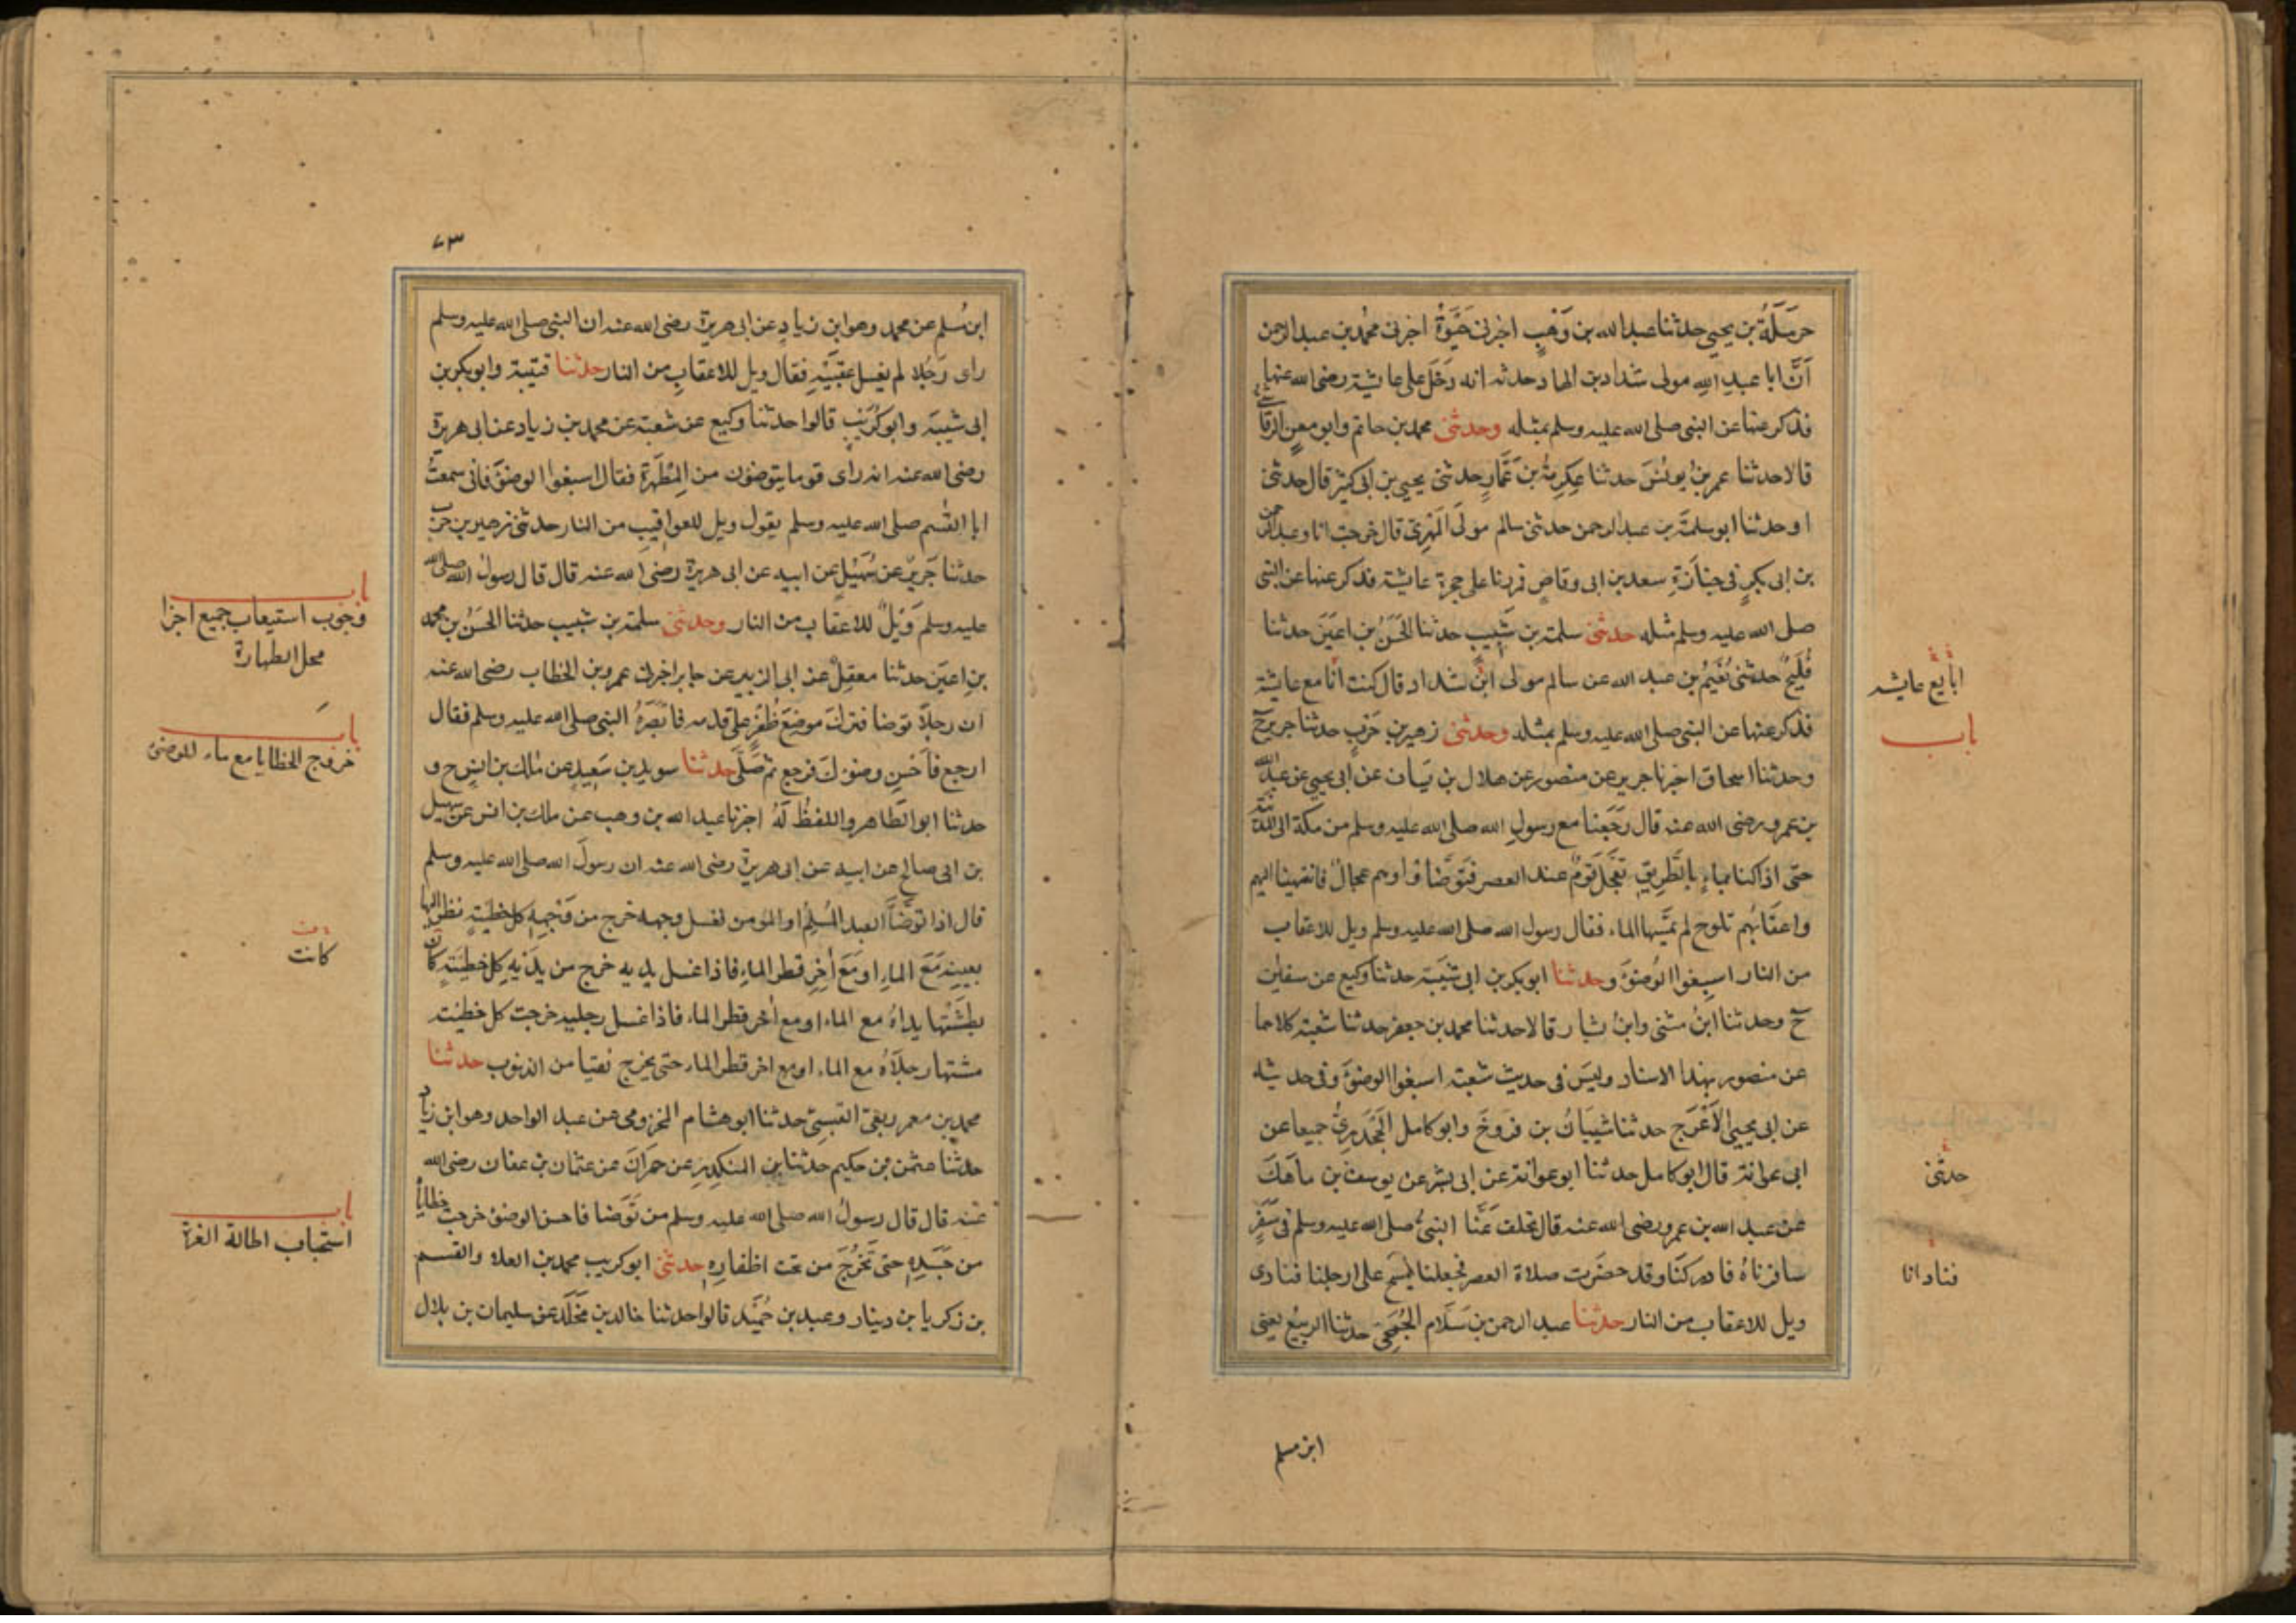 حرملة بن يحيى حدثنا عبدالله بن وَهْبٍ اخبرنى حَيْوَةُ اخبرنى محمد بن عبد الرحمن
اَنَّ ابا عبدِ اللهِ مولى شداد بن الهاد حدثه انه دَخَلَ على عايشة رضى الله عنها
فذكر عنها عن النبى صلى الله عليه وسلم بمثله وحدثنى محمد بن حاتم وابو معن الرقاشى
قالا حدثنا عمر بن يونُسَ حدثنا عِكرِمةُ بن عَمَّارٍ حدثنى يحيى بن ابى كثيرٍ قال حدثنى
او حدثنا ابو سلمةَ بن عبدالرحمن حدثنى سالم مولَى المَهْرِىِّ قال خرجت انا وعبدالرحمن
بن ابى بكرٍ فى جنازةِ سعد بن ابى وقاصٍ فمررنا على حجرة عايشة فذكر عنها عن النبى
صلى الله عليه وسلم مثله حدثنى سلمة بن شَبِيبٍ حدثنا الحَسَنُ بن اعيَنَ حدثنا
فُلَيحٌ حدثنى نُعَيْمُ بن عبد الله عن سالم مولى ابن شداد قال كنت انا مع عايشة
ابايع عايشه
فذكر عنها عن النبى صلى الله عليه وسلم بمثله وحدثنى زهير بن حَربٍ حدثنا جرير ح
باب
وحدثنا اسحاق اخبرنا جرير عن منصور عن هلال بن يَساف عن ابى يحيى عن عبدالله
بن عمرو رضى الله عنه قال رَجَعنا مع رسولِ الله صلى الله عليه وسلم من مكة الى المدينة
حتى اذا كنا بماءٍ بالطَّرِيقِ تعجَّلَ قومٌ عند العصر فتوضَّاؤا وهم عجالٌ فانتهينا اليهم
واعقابُهم تلوح لم يمَسَّها الماء فقال رسول الله صلى الله عليه وسلم ويل للاعقاب
من النار اسبِغوا الوُضوءَ وحدثنا ابو بكر بن ابى شَيبَة حدثنا وكيع عن سفين
ح وحدثنا ابنُ مثنى وابنُ بشار قالا حدثنا محمد بن جعفر حدثنا شعبة كلاهما
عن منصور بهذا الاسناد وليسَ فى حديث شعبة اسبغوا الوضوءَ وفى حديثه
عن ابى يحيى الاَعْرَج حدثنا شَيبَانُ بن فَرُّوخَ وابو كامل الجَحْدَرِىُّ جميعا عن
ابى عوانة قال ابو كامل حدثنا ابو عوانة عن ابى بشر عن يوسف بن ماهَكَ
حدثنى
عن عبد الله بن عمرو رضى الله عنه قال تخلف عَنَّا النبىُّ صلى الله عليه وسلم فى سَفَرٍ
سافرناهُ فادركنَا وقد حضَرت صلاة العصر فجعلنا نمسح على ارجلنا فنادى
فنادانا
ويل للاعقاب من النار حدثنا عبد الرحمن بن سَلَّام الجُمَحِىّ حدثنا الربيع يعنى
ابن مسلم
٧٣
ابن مُسلم عن محمد وهو ابن زيادٍ عن ابى هريرة رضى الله عنه ان النبى صلى الله عليه وسلم
راى رَجُلا لم يغسل عقبَيْهِ فقال ويل للاعقابِ من النار حدثنا قتيبة وابو بكر بن
ابى شيبَة وابو كُرَيْبٍ قالوا حدثنا وكيع عن شعبة عن محمد بن زياد عن ابى هريرة
رضى الله عنه انه راى قوما يتوضؤن من المِطْهَرةِ فقال اسبغوا الوضوءَ فانى سمعتُ
ابا القٰسم صلى الله عليه وسلم يقول ويل للعواقيبِ من النار حدثنى زهير بن حرب
حدثنا جَرِيرٌ عن سُهَيْلٍ عن ابيه عن ابى هريرة رضى الله عنه قال قال رسولُ الله صلى الله
باب
وجوب استيعاب جميع اجزا
محل الطهارة
عليه وسلم وَيْلٌ للاعقاب من النار وحدثنى سلمة بن شبيب حدثنا الحَسَنُ بن محمد
بن اعيَنَ حدثنا معقِلٌ عن ابى الزبير عن جابر اخبرنى عمر بن الخطاب رضى الله عنه
ان رجلاً توضا فترك موضعَ ظُفُرٍ على قدمه فابصَرَهُ النبى صلى الله عليه وسلم فقال
باب
خروج الخطايا مع ماء الوضوء
ارجع فاَحْسِن وضوءَك فرجع ثم صَلَّى حدثنا سويد بن سَعِيدٍ عن مٰلك بن انسٍ ح و
حدثنا ابو الطَّاهر واللفظُ لَهُ اخبرنا عبد الله بن وهب عن ملك بن انس عن سهيل
بن ابى صالح عن ابيه عن ابى هريرة رضى الله عنه ان رسولَ الله صلى الله عليه وسلم
قال اذا توضَّاَ العبد المُسلِمُ او المؤمن فغسل وجهه خرج من وَجهِهِ كل خطيئةٍ نظر اليها
كانت
بعينِه مَعَ الماءِ او مَعَ اٰخِرِ قطر الماءِ فاذا غسل يديه خرج من يدَيهِ كل خطيئةٍ كان
بطَشَتْها يداهُ مع الماء او مع اٰخر قطر الماء فاذا غسل رجليه خرجت كل خطيئة
مشتها رجلاهُ مع الماء او مع اخر قطر الماء حتى يخرج نقيا من الذنوب حدثنا
محمد بن معمر بن ربعى القيسىّ حدثنا ابو هشام المخزومى عن عبد الواحد وهو ابن زياد
حدثنا عثمن بن حكيم حدثنا بن المنكدِرِ عن حمرَانَ عن عثمان بن عفان رضى الله
عنه قال قال رسولُ الله صلى الله عليه وسلم من تَوَضا فاحسن الوضوءَ خرجت خطاياهُ
باب
استحباب اطالة الغرة
من جَسَدِهِ حتى تَخْرُجَ من تحت اظفارِهِ حدثنى ابو كريب محمد بن العلاء والقسم
بن زكريا بن دينار وعبد بن حُمَيْد قالوا حدثنا خالد بن مَخْلَد عن سليمان بن بلال